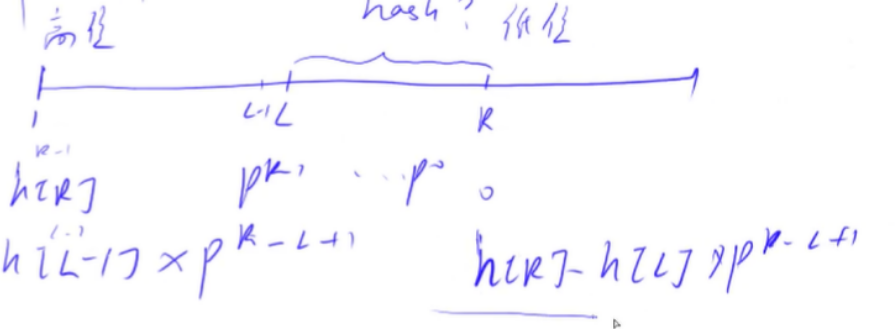 高位 hash? 低位
1 L-1 L R
R-1
h[R] p^R-1 ...p^0 0
h[L-1]×p^R-L+1 h[R]-h[L]×p^R-L+1